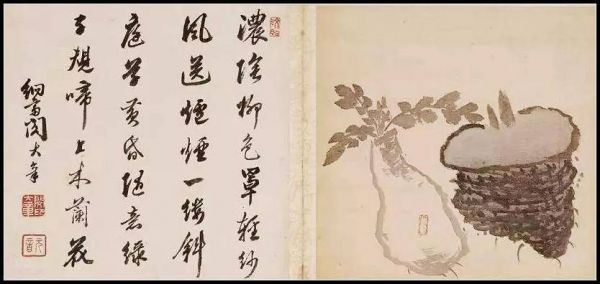 濃陰柳色罩輕紗
風送爐煙一縷斜
庭草黃昏隨意綠
子規啼上木蘭花
大年